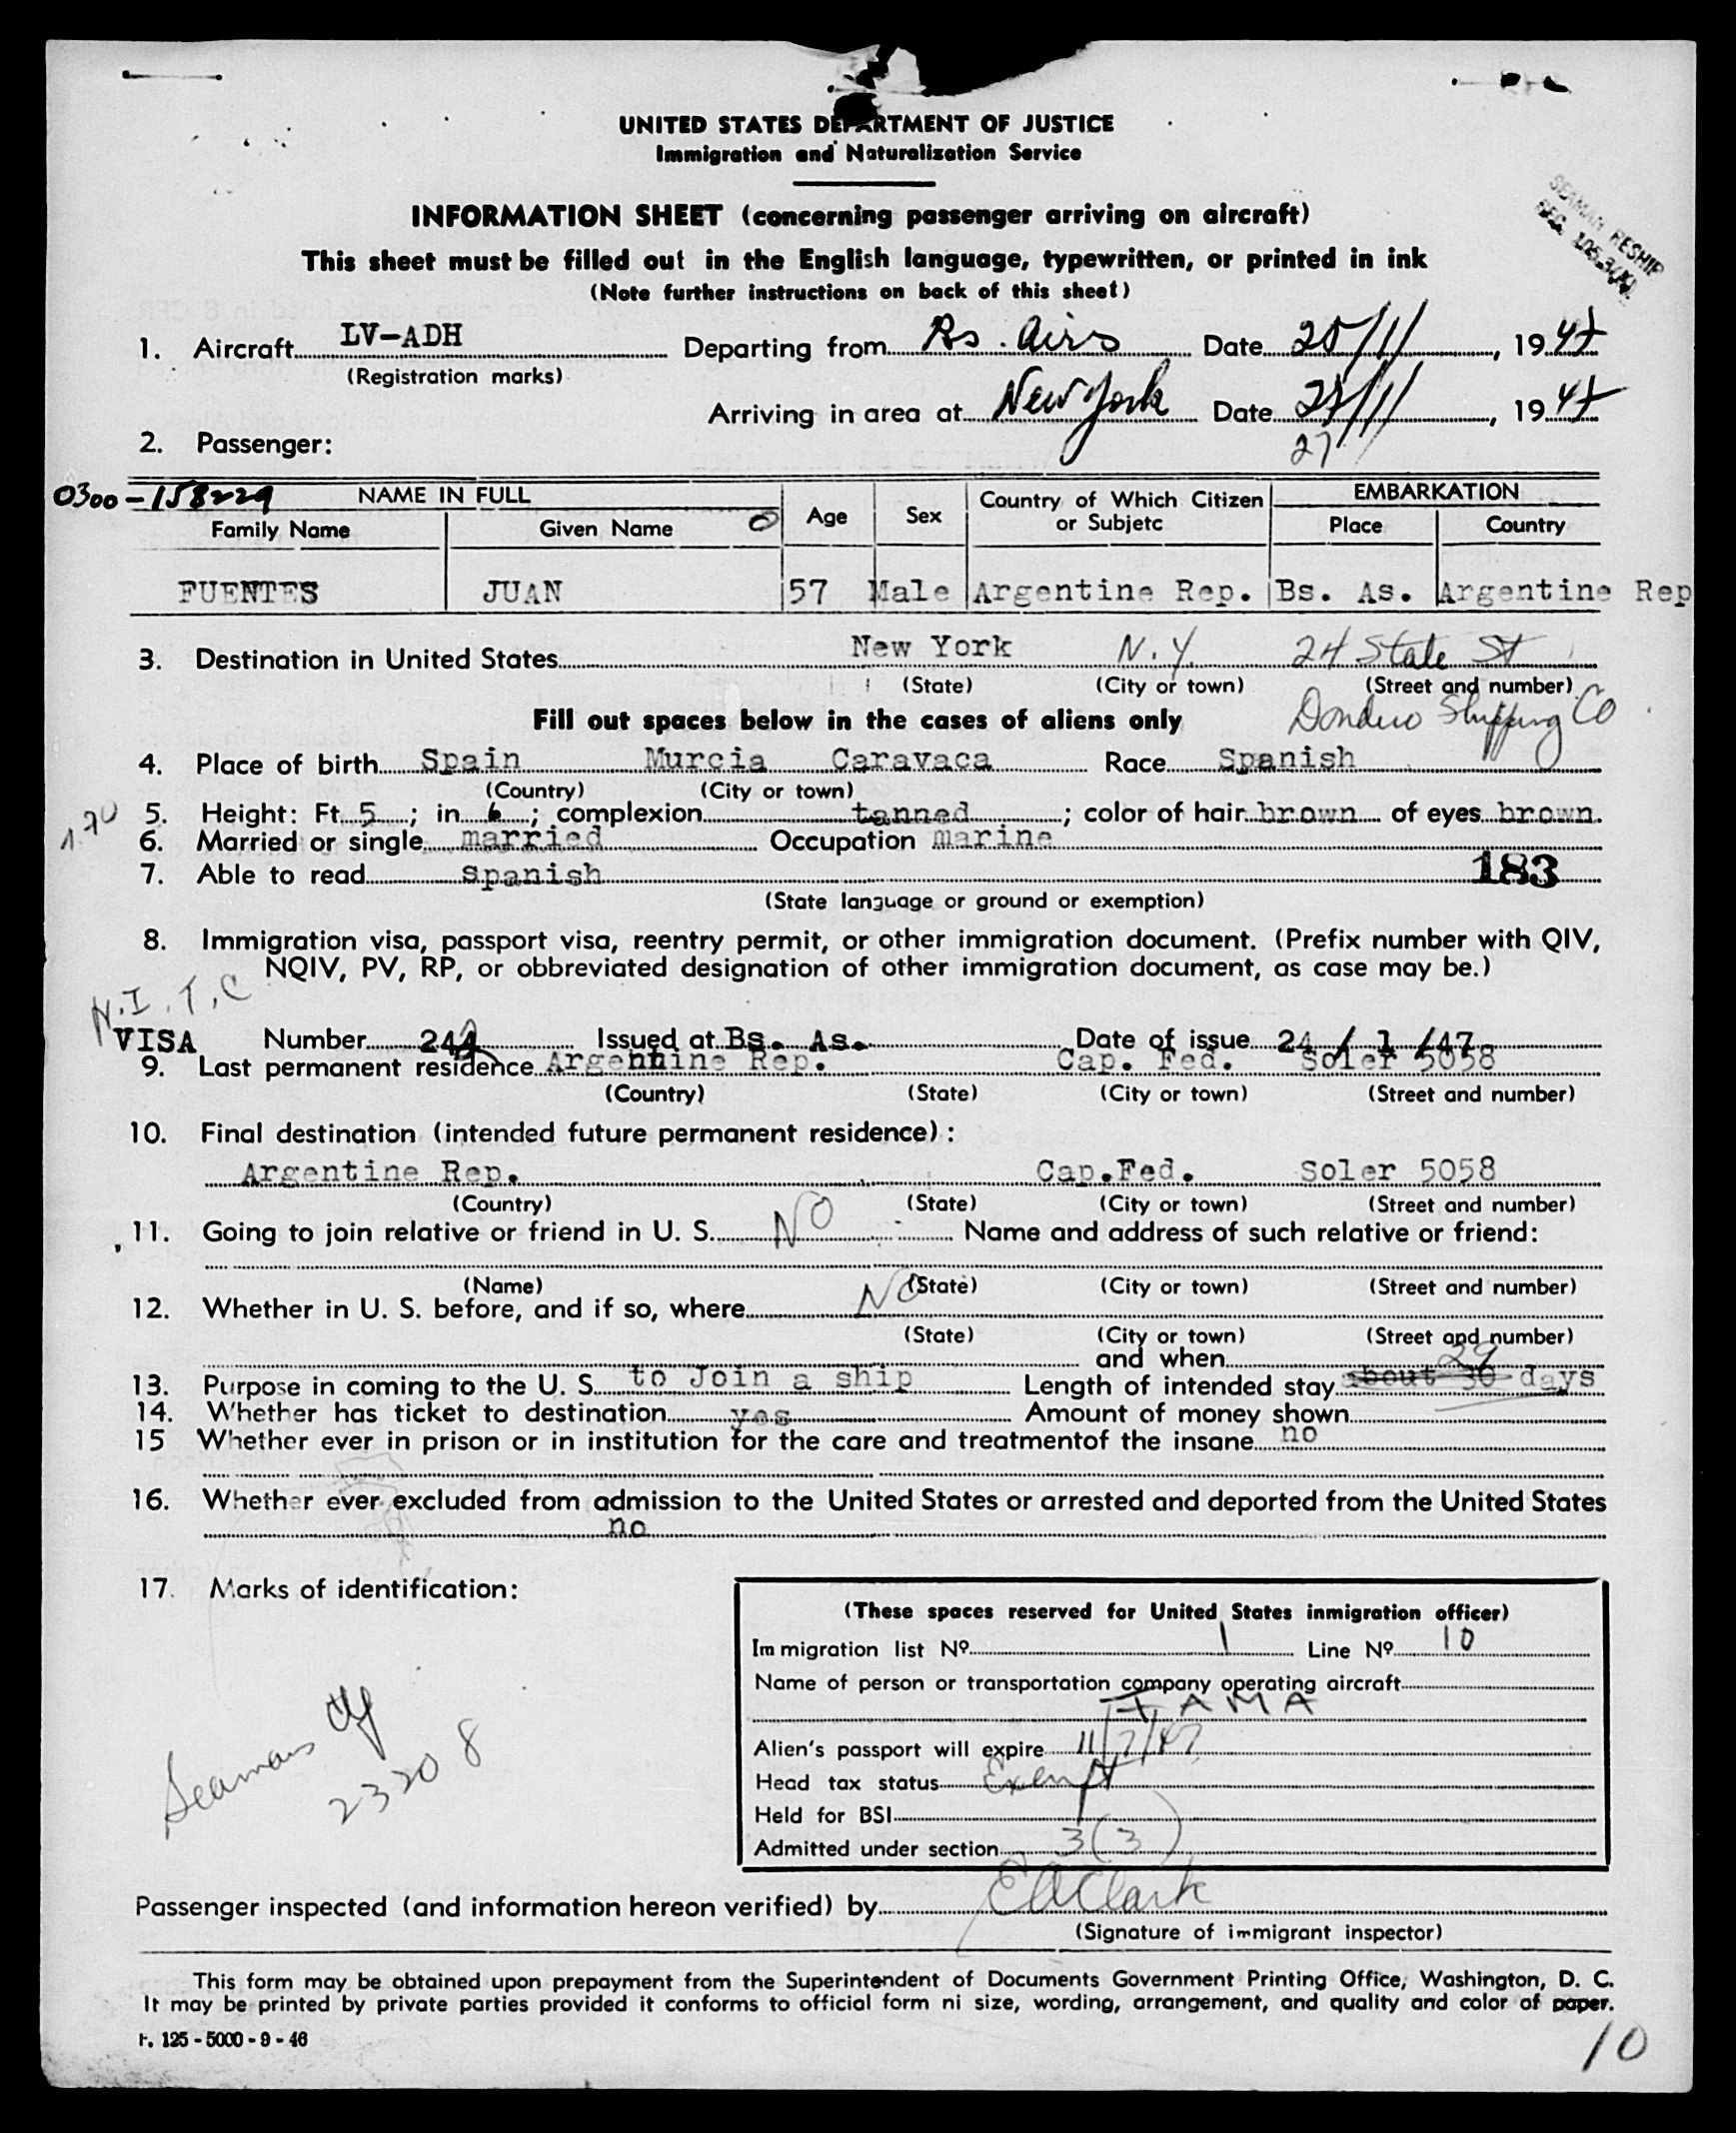 UNITED STATES DEPARTMENT OF JUSTICE
Immigration and Naturalization Service
INFORMATION SHEET (concerning passenger arriving on aircraft)
SEAMAN RESHIP
This sheet must be filled out in the English language, typewritten, or printed in ink
(Note further instructions on back of this sheet)
1. Aircraft LV-ADH Departing from Bs. Airs Date 25/1/, 1947
(Registration marks)
Arriving in area at New York Date 27/1/, 1947
27
2. Passenger:
0300-158229 NAME IN FULL Age Sex Country of Which Citizen or Subjetc EMBARKATION
Family Name Given Name 0 Place Country
FUENTES JUAN 57 Male Argentine Rep. Bs. As. Argentine Rep
3. Destination in United States New York N.Y. 24 State St
(State) (City or town) (Street and number)
Fill out spaces below in the cases of aliens only Shipping Co
4. Place of birth Spain Murcia Caravaca Race Spanish
(Country) (City or town)
1.70 5. Height: Ft. 5; in. 6; complexion tanned; color of hair brown of eyes brown.
6. Married or single married Occupation marine
7. Able to read spanish 183
(State language or ground or exemption)
8. Immigration visa, passport visa, reentry permit, or other immigration document. (Prefix number with QIV,
NQIV, PV, RP, or obbreviated designation of other immigration document, as case may be.)
N.I.T.C
VISA Number Issued at Bs. As. Date of issue 24 / 1 /47
9. Last permanent residence Argentine Rep. Cap. Fed. Soler 5058
(Country) (State) (City or town) (Street and number)
10. Final destination (intended future permanent residence):
Argentine Rep. Cap.Fed. Soler 5058
(Country) (State) (City or town) (Street and number)
11. Going to join relative or friend in U. S. NO Name and address of such relative or friend:
(Name) (State) (City or town) (Street and number)
12. Whether in U. S. before, and if so, where NO
(State) (City or town) (Street and number)
and when
29
13. Purpose in coming to the U. S. to Join a ship Length of intended stay about 30 days
14. Whether has ticket to destination yes Amount of money shown
15 Whether ever in prison or in institution for the care and treatmentof the insane no
16. Whether ever excluded from admission to the United States or arrested and deported from the United States
no
17. Marks of identification:
(These spaces reserved for United States inmigration officer)
Immigration list Nº 1 Line Nº 10
Name of person or transportation company operating aircraft
FAMA
Alien's passport will expire 11/7/47
Head tax status Exempt
Held for BSI
Admitted under section 3(3)
Seamans
23208
Passenger inspected (and information hereon verified) by EAClark
(Signature of immigrant inspector)
This form may be obtained upon prepayment from the Superintendent of Documents Government Printing Office, Washington, D. C.
It may be printed by private parties provided it conforms to official form ni size, wording, arrangement, and quality and color of paper.
F. 125 - 5000 - 9 - 46
10